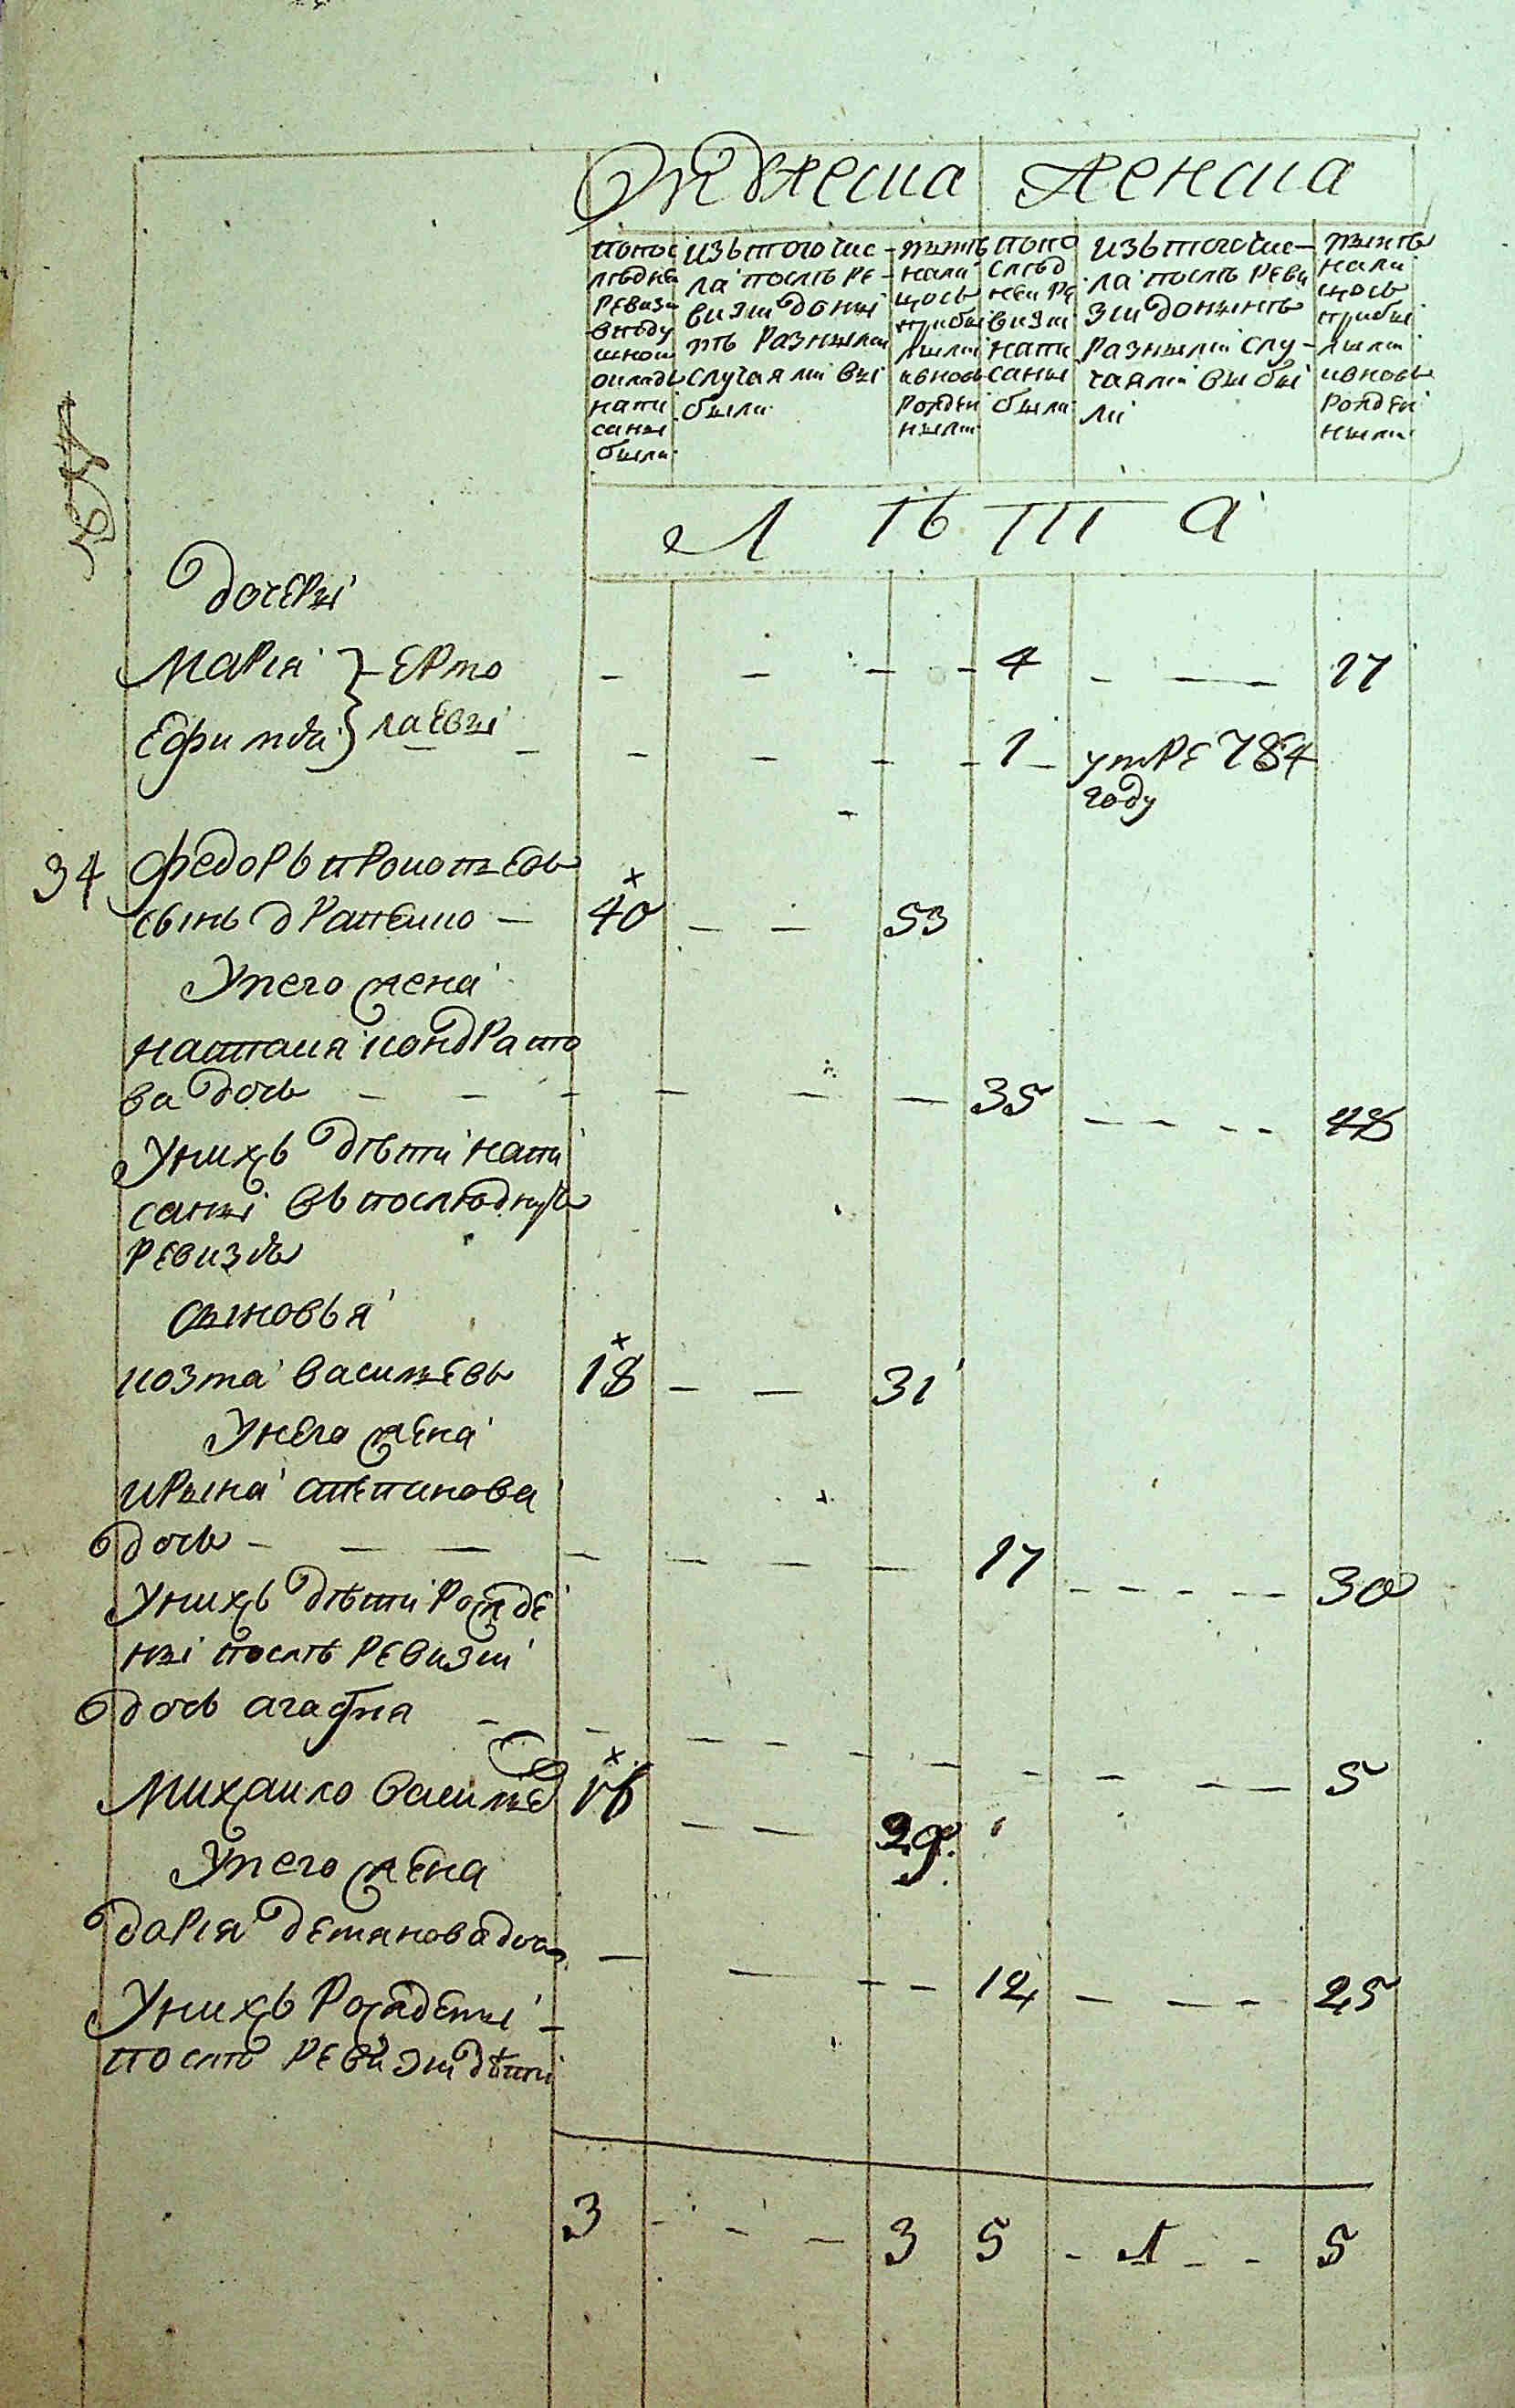 Мужеска женска
попос
ледней
ревизи
вподу
шном
окладе
напи
саны
были
изь того чис-
ла после ре-
визии до ны
не разными
случаями вы
были
ныне
нали
цось
прибы
лыми
ивновь
рожден
ными
попо
след
ней ре
визи
напи
саны
были
изь того чис-
ла после реви
зии до ныне
разными слу-
чаями выбы
ли
ныне
нали
цось
прибы
лыми
ивновь
рожден
ными
лѣта
дочеры
Мариа } Ермо 4 17
Ефимиа } лаевы 1 умре 784
году
34 Федорь прокопьевь
сынь драпейко 40 53
У него жена
наталия кондрато
ва дочь 35 48
У нихь дѣти напи
саны вь последную
ревизию
сыновья
козма васильевь 18 31
У него жена
ирына степанова
дочь 17 30
У нихь дѣти рожде
ны послѣ ревизии
дочь агафиа 5
Михаило василье 16 29
У него жена
дариа демянова дочь 12 25
У нихь рождены
послѣ ревизии дѣти
3 3 5 1 5